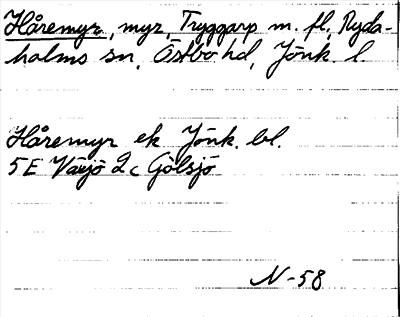 Håremyr, myr, Tryggarp m. fl., Ryda-
holms sn, Östbo hd, Jönk. l.
Håremyr ek Jönk. bl.
5E Växjö 2c Gölsjö
N-58